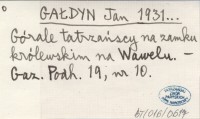 GAŁDYN Jan 1931...
Górale tatrzańscy na zamku
królewskim na Wawelu. –
Gaz. Podh. 19, nr 10.